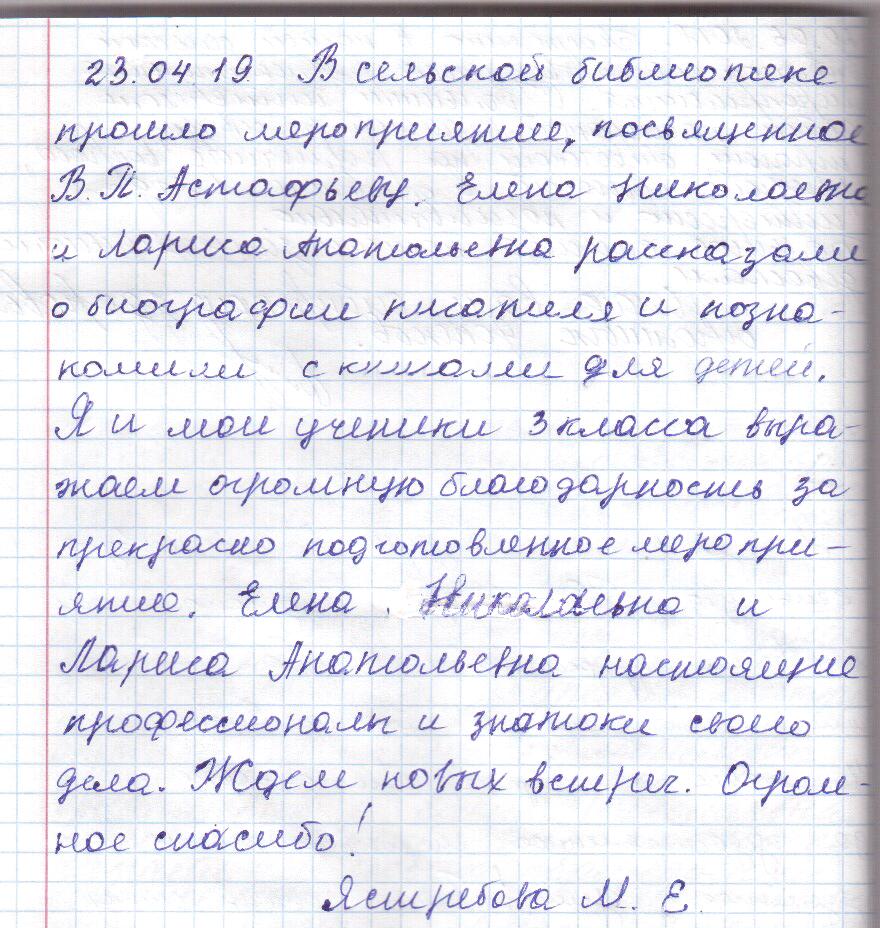 23.04.19 В сельской библиотеке
прошло мероприятие, посвященное
В.П. Астафьеву. Елена Николаевна
и Лариса Анатольевна рассказали
о биографии писателя и позна-
комили с книгами для детей.
Я и мои ученики 3 класса выра-
жаем огромную благодарность за
прекрасно подготовленное меропри-
ятие. Елена Николаевна и
Лариса Анатольевна настоящие
профессионалы и знатоки своего
дела. Ждем новых встреч. Огром-
ное спасибо!
Ястребова М. Е.